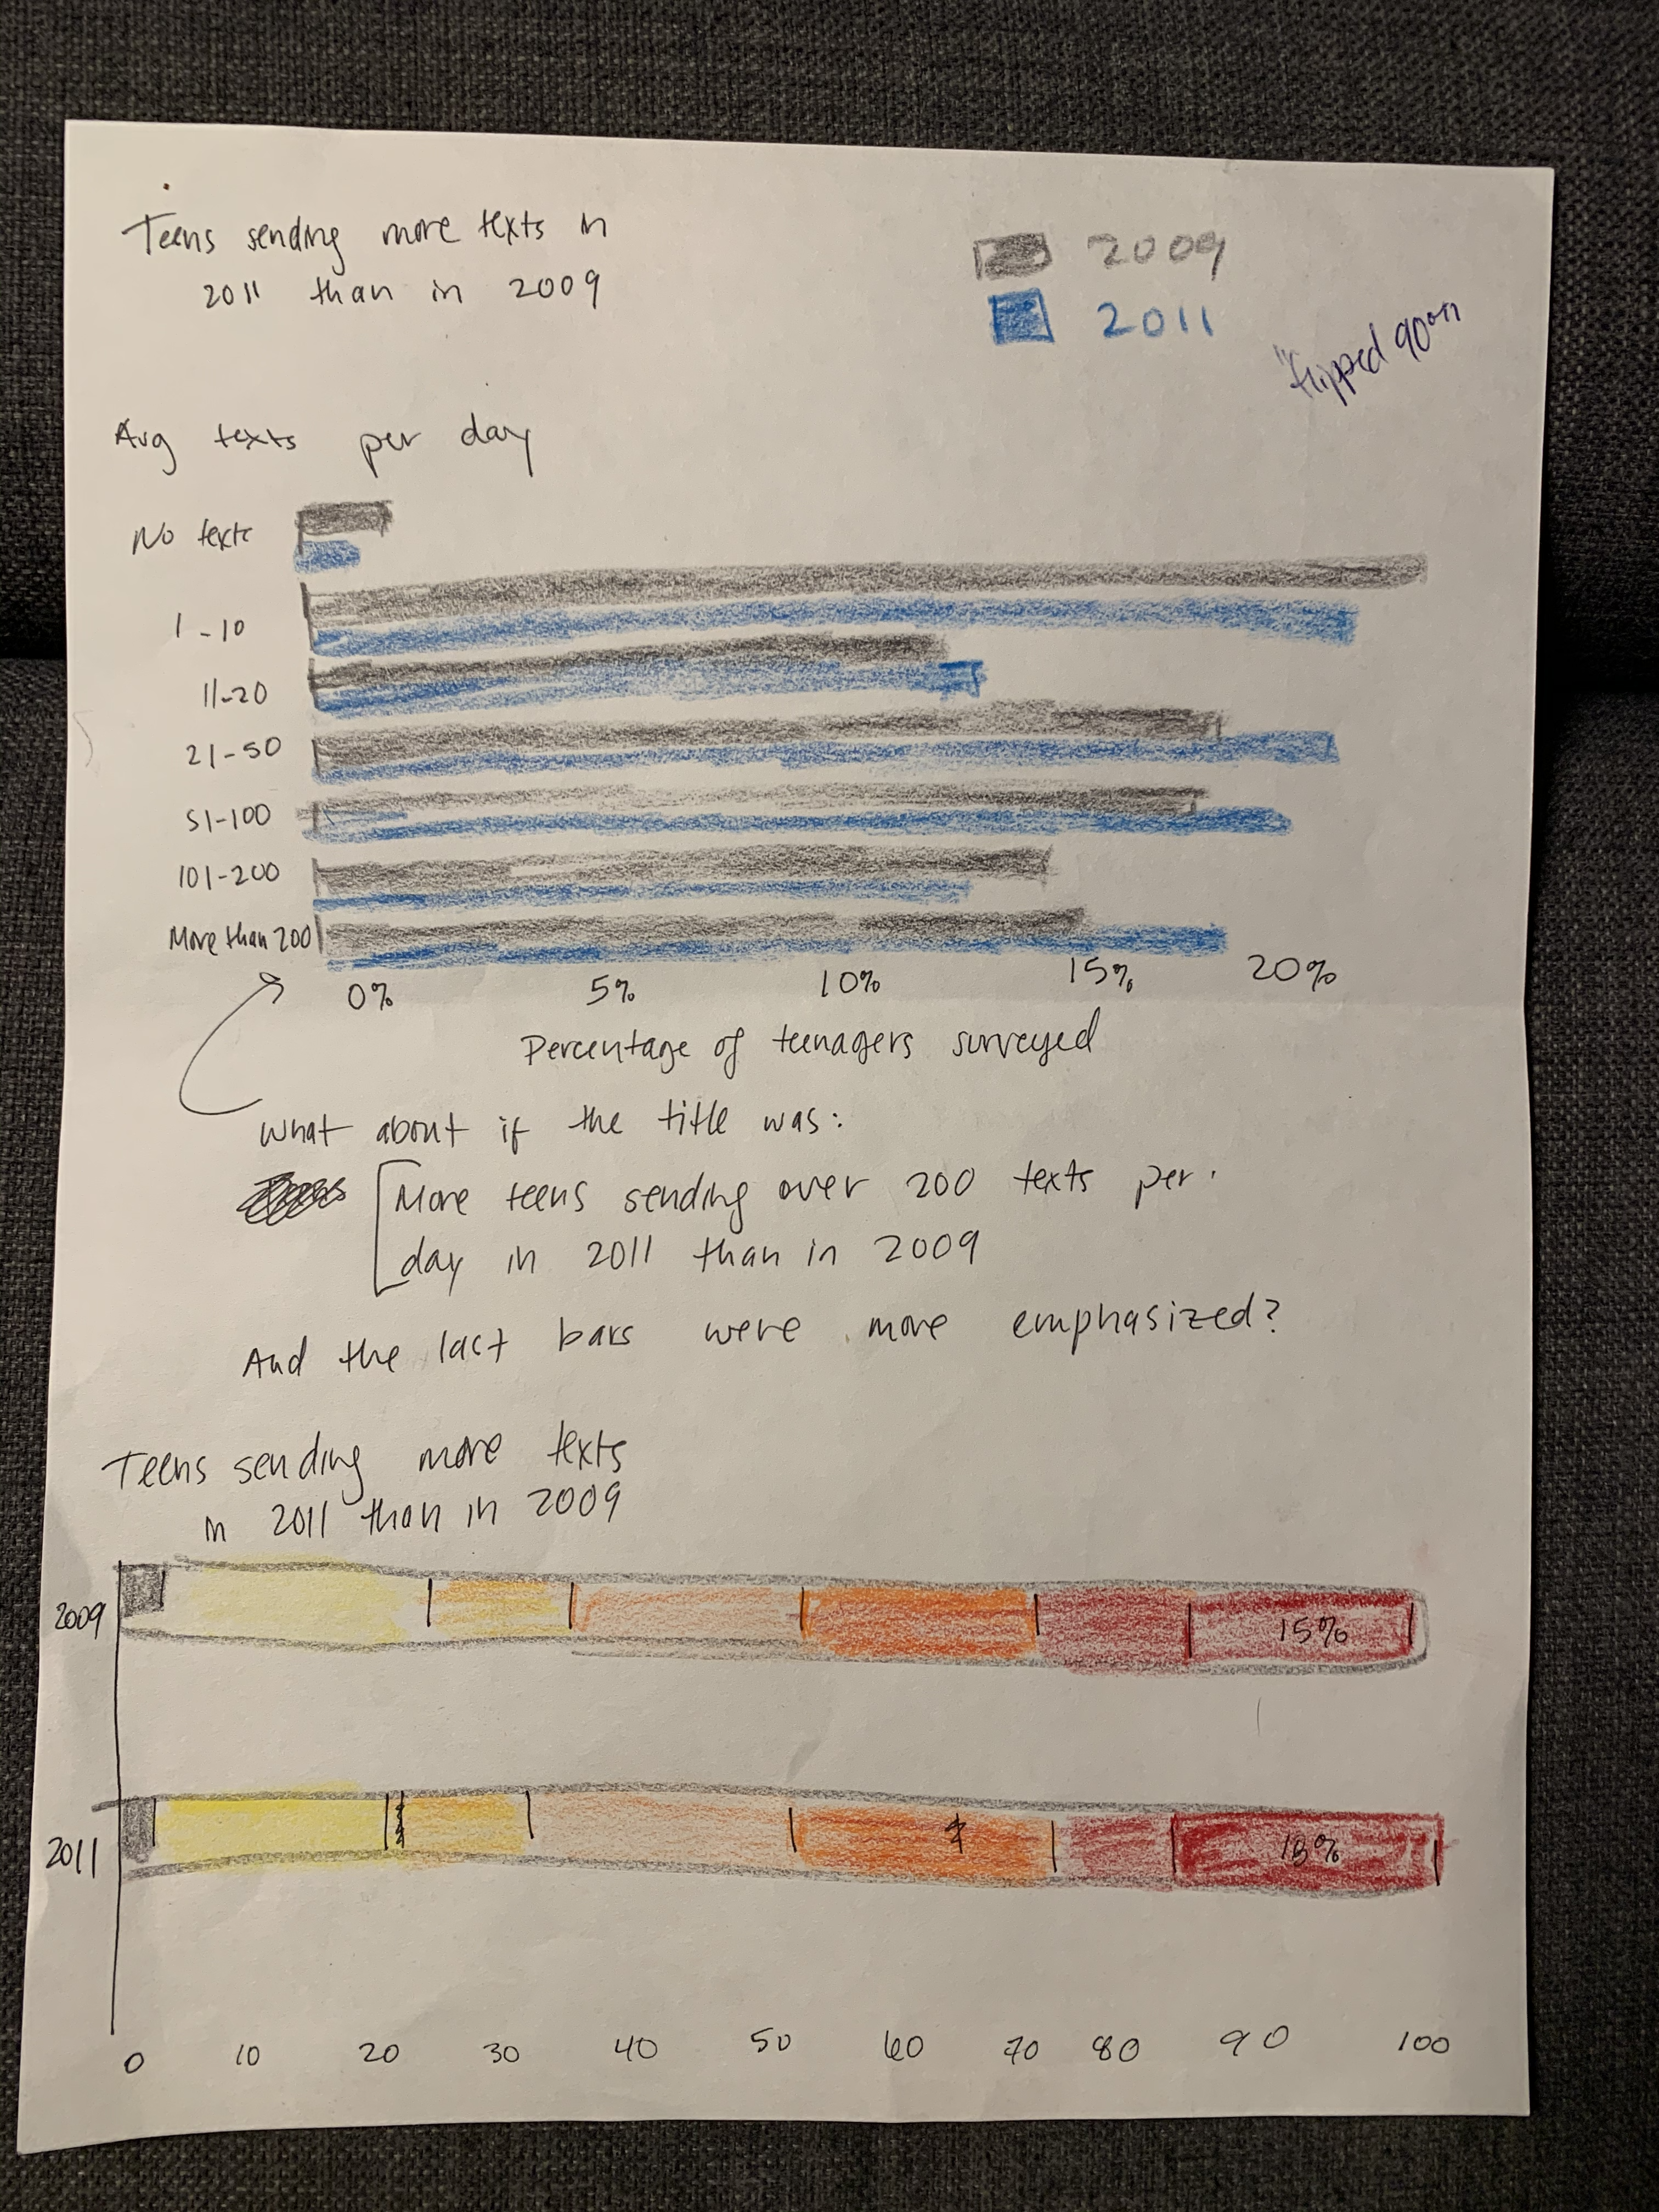 Teens sending more texts in
2011 than in 2009
2009
2011
"flipped 90°"
Avg texts per day
No texts
1-10
11-20
21-50
51-100
101-200
More than 200
0% 5% 10% 15% 20%
Percentage of teenagers surveyed
What about if the title was:
More teens sending over 200 texts per
day in 2011 than in 2009
And the last bars were more emphasized?
Teens sending more texts
in 2011 than in 2009
2009
15%
2011
18%
0 10 20 30 40 50 60 70 80 90 100